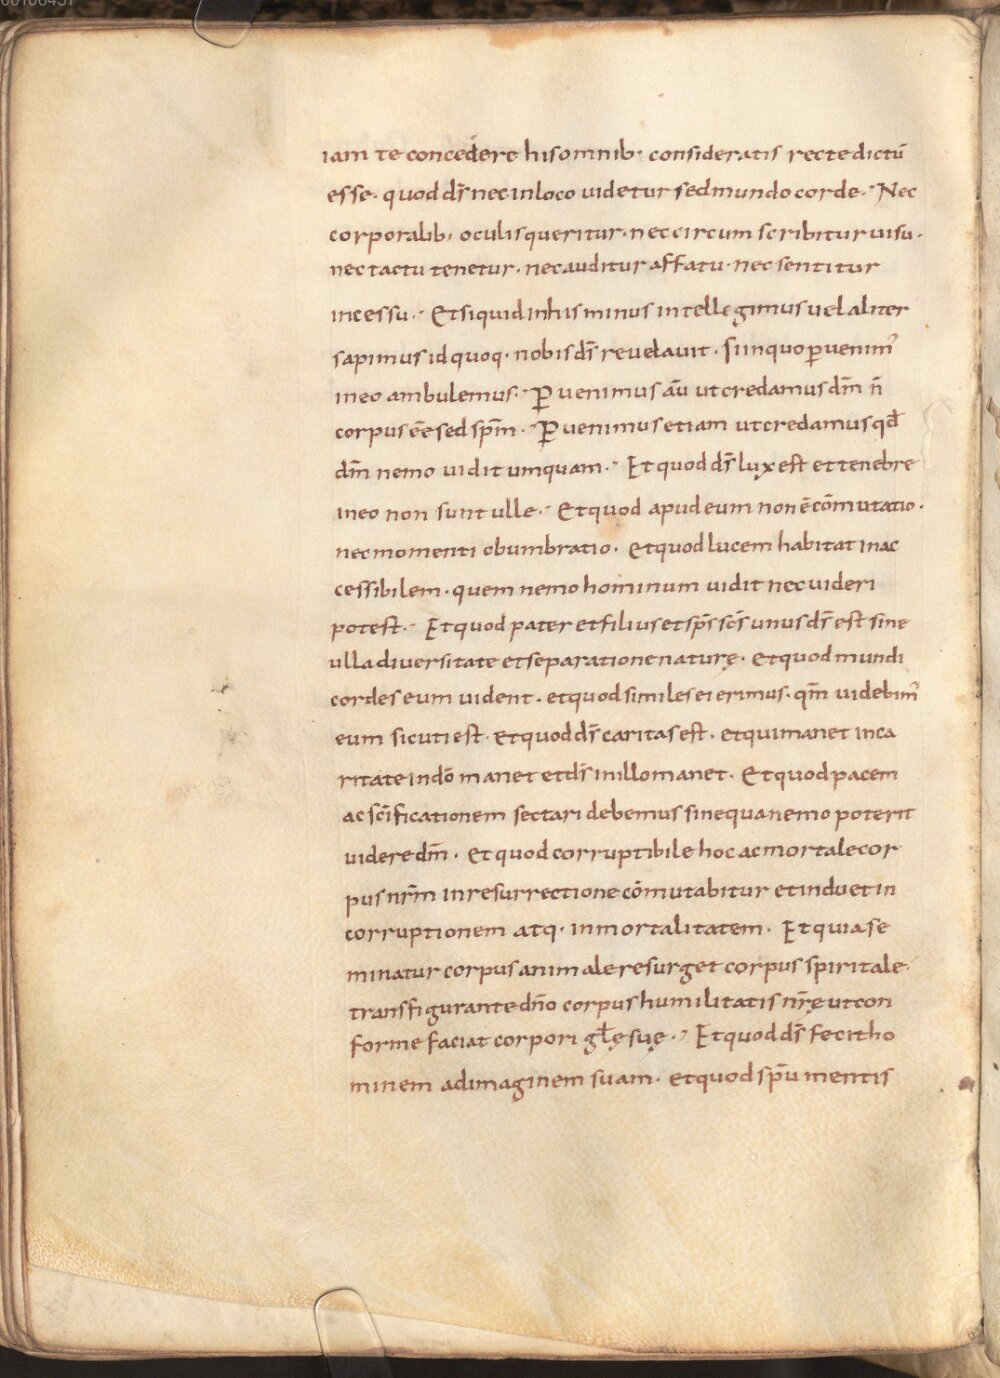 iam te concedere his omnib· consideratis recte dictū
esse· quod d̄s nec in loco uidetur sed mundo corde· Nec
corporalib; oculis queritur· nec circum scribitur uisu·
nec tactu tenetur· nec auditur affatu· nec sentitur
incessu· Et siquid in his minus intellegimus uel aliter
sapimus id quoq· nobis d̄s reuelauit· Si in quo ꝑuenim᾽
in eo ambulemus· Ꝑuenimus aū ut credamus dm̄ n̄
corpus ēē sed sp̄m· Ꝑuenimus etiam ut credamus qđ
dm̄ nemo uidit umquam· Et quod d̄s lux est et tenebre
in eo non sunt ulle· Et quod apud eum non ē cōmutatio·
nec momenti obumbratio· Et quod lucem habitat inac
cessibilem· quem nemo hominum uidit nec uideri
potest· Et quod pater et filius et sp̄s sc̄s unus d̄s est sine
ulla diuersitate et separatione naturę· Et quod mundi
cordes eum uident· et quod similes ei erimus· qm̄ uidebim᾽
eum sicuti est· et quod d̄s caritas est· et qui manet in ca
ritate in dō manet et d̄s in illo manet· Et quod pacem
ac sc̄ificationem sectari debemus sine qua nemo poterit
uidere dm̄· Et quod corruptibile hoc ac mortale cor
pus nr̄m in resurrectione cōmutabitur et induet in
corruptionem atq· inmortalitatem· Et quia se
minatur corpus animale resurget corpus spiritale·
transfigurante dn̄o corpus humilitatis nr̄ę ut con
forme faciat corpori gl̄ę suę· Et quod d̄s fecit ho
minem ad imaginem suam· et quod sp̄u mentis